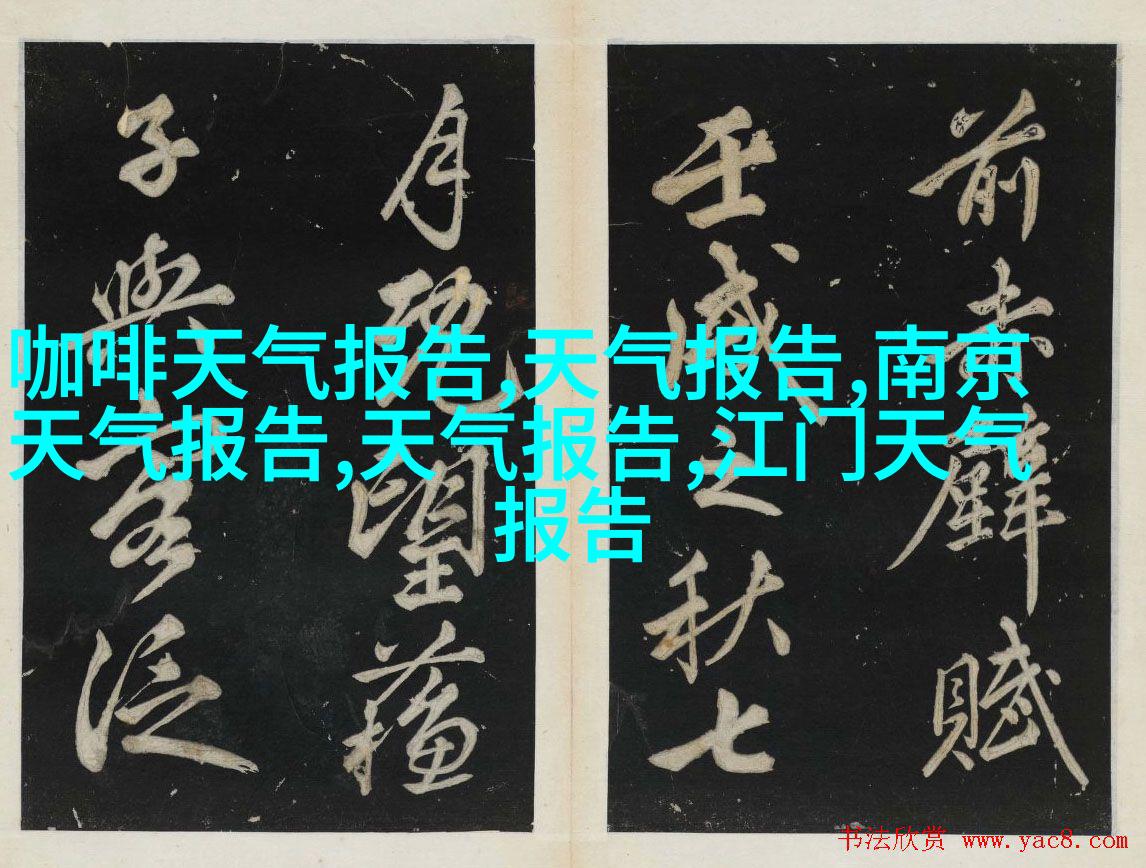 前赤壁賦
壬戌之秋七
月既望蘓
子與客泛
咖啡天气报告,天气报告,南京
天气报告,天气报告,江门天气
报告
书法欣赏 www.yac8.com